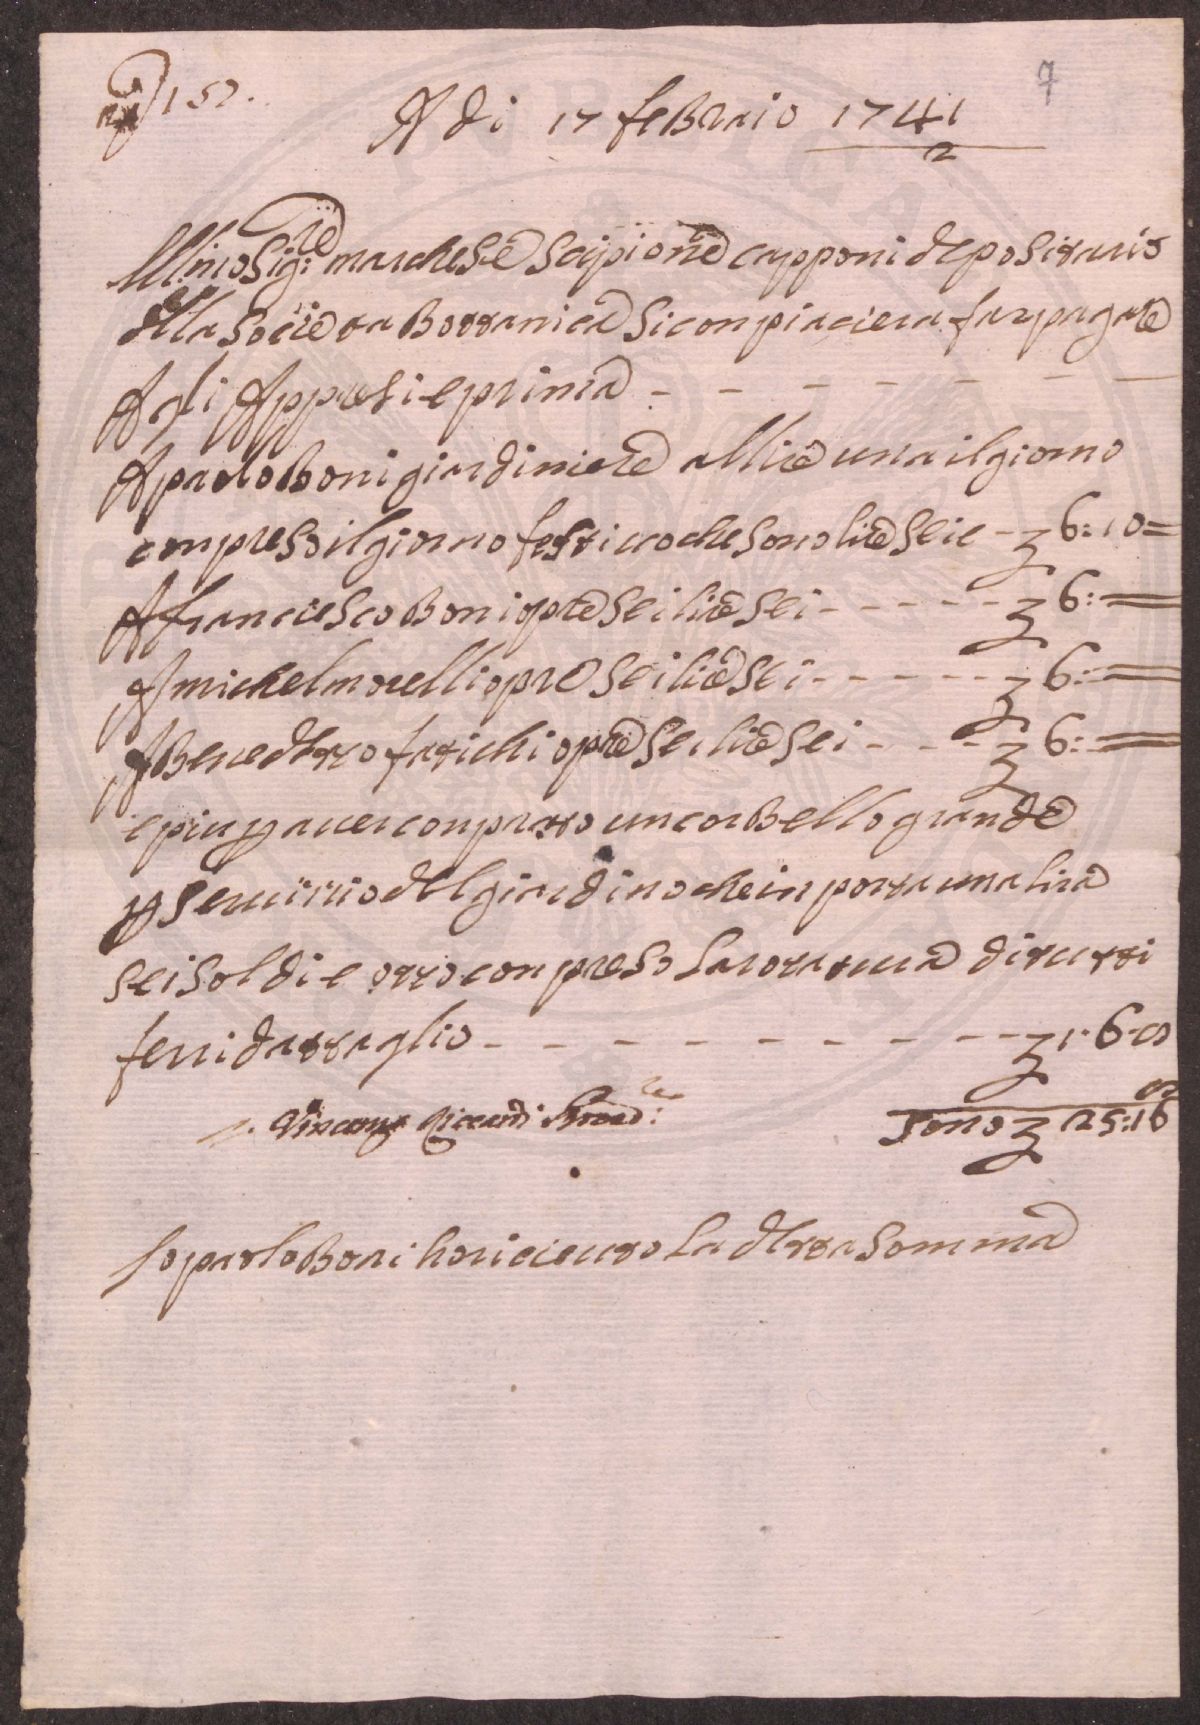 N 157.
7
A di 17 feBraio 1741
2
Ill:mo Sig:re marchese Scipione capponi depositario
della Societa Bottanica Si conpiacera far pagare
Agli Appresi e prima - - - - - - -
A paolo Boni giardiniere a llire una il giorno
conpreso il giorno festivo che sono lire Seie - £ 6: 10 =
A francesco Boni opre Sei lire Sei - - - - - £ 6: =
A michel morelli opre Sei lire Sei - - - - - £ 6: =
A Benedetto fatichi opre Sei lire Sei - - - - £ 6: =
e piu p aver conprato un corBello grande
p Servitio del giardino che inporta una lira
Sei Soldi e otto conpreso l arotatura di tutti
ferri da ttaglio - - - - - - - - - - £ 1 - 6 - 8
Vincenzo Riccardi Provved:re
Sono £ 25: 16 8
Io paolo Boni ho riceuto La detta Somma